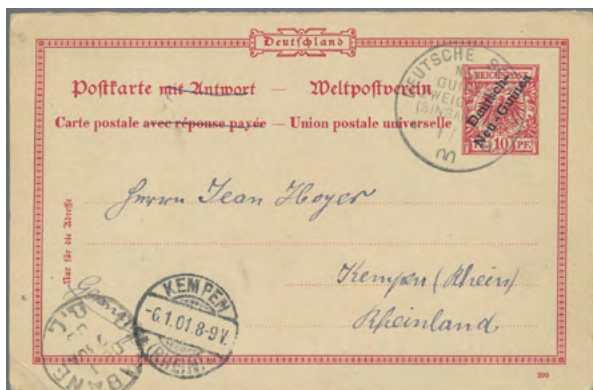 Deutschland
Postkarte mit Antwort — Weltpostverein
Carte postale avec réponse payée — Union postale universelle
DEUTSCHE
REICHSPOST
Deutsch-
Neu-Guinea
10 PF.
Herrn Jean Hoyer
Nur für die Adresse
Kempen (Rhein)
Rheinland
KEMPEN
-6.1.01.8-9V.
(RHEIN)
398